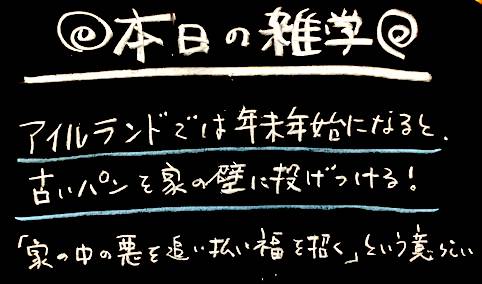 本日の雑学
アイルランドでは年末年始になると、
古いパンを家の壁に投げつける!
「家の中の悪を追い払い福を招く」という意らしい